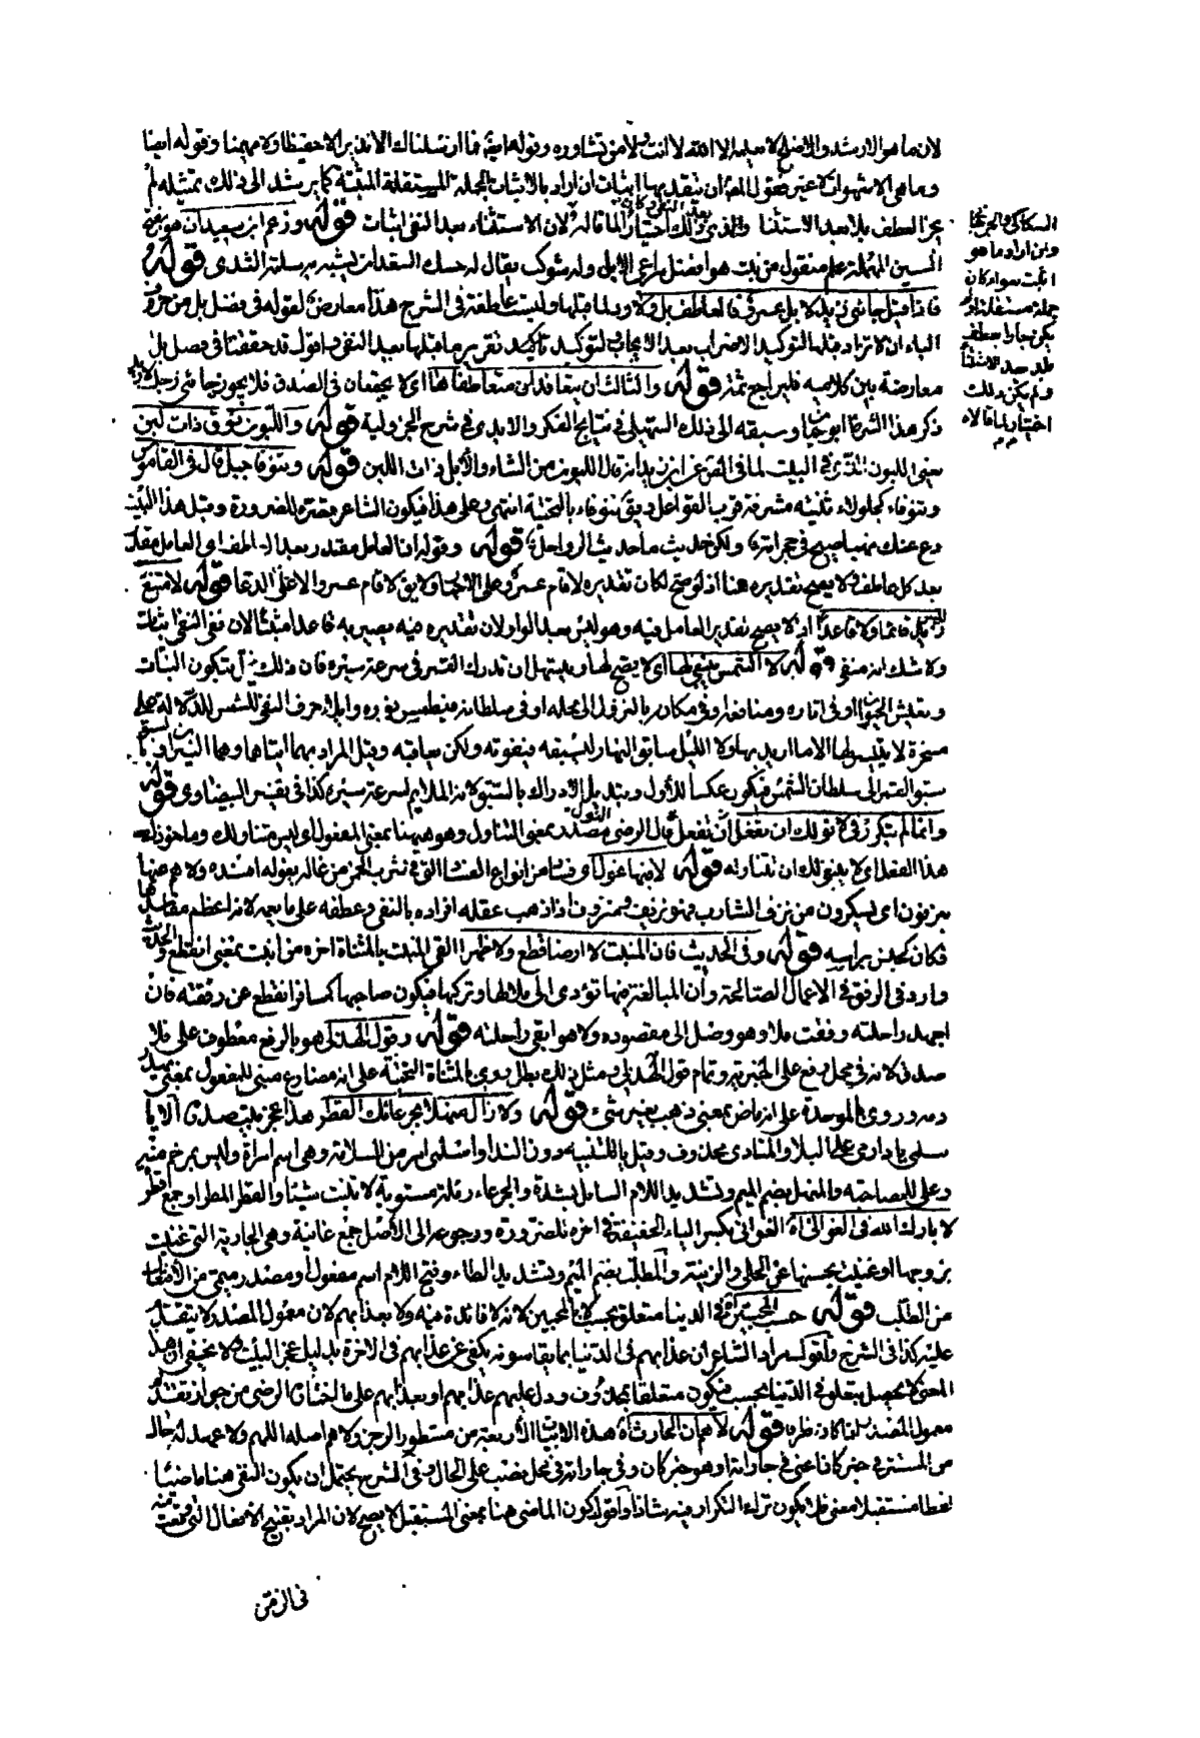 لان ما هو الارشد والاصلح لا يعلمه الا الله لا انت ولا من تشاوره وقوله ايضا فما ارسلناك الا نذيرا لا حفيظا ولا مهيمنا وقوله ايضا
وما هى الا شهوات لا غير فقول المص ان يتقدمها اثبات ان اراد بالاثبات الجملة المستقلة المثبتة كما يرشد الى ذلك تمثيله لم
يجز العطف بلا بعد الاستثناء والذى لان الاستثناء بعد النفى اثبات قوله وزعم ابن سعيدان هو بفتح
السين المهملة علم منقول من نبت هو افضل مراعى الابل وله شوك يقال له حسك السعدان تشبه به حلمة الثدى قوله
فاذا قيل جاءنى زيد لا بل عمرو فالعاطف بل ولا رد لما قبلها وليست عاطفة فى الشرح هذا معارض لقوله فى فصل بل من حرف
الباء ان لا تزاد قبلها لتوكيد الاضراب بعد الايجاب ولتوكيد تقرير ما قبلها بعد النفى واقول قد حققنا فى فصل بل
معارضة بين كلاميه فليراجع ثمة قوله والثالث ان يتعاند متعاطفاها اى لا يجتمعان فى الصدق فلا يجوز جاءنى رجل لا زيد
ذكر هذا الشرط ابو حيان وسبقه الى ذلك السهيلى فى نتايج الفكر والابدى فى شرح الجزولية قوله واللبون فوق ذات لبن
يعنى اللبون المذكور فى البيت لما فى عن ابى زيد انه قال اللبون من الشاء والابل ذات اللبن قوله وتنوفا جبل قال فى القاموس
وتنوفاء كجلولاء ثنية مشرفة قرب القواعل ويق ينوفاء بالتحتية انتهى وعلى هذا فيكون الشاعر قصره للضرورة وقبل هذا البيت
دع عنك نهبا صيح فى حجراته ولكن حديث ما حديث الرواحل قوله وقوله ان العامل مقدر بعد العطف اى العامل مقدر
بعد كل عاطف ولا يصح تقديره هنا اذ لو صح لكان تقديره لا قام عمرو على الاخبار ولا يق لا قام عمرو الا على الدعا قوله لامتنع
ليس زيد قائما ولا قاعدا اذ لا يصح تقدير العامل فيه وهو ليس بعد الواو لان تقديره فيه يصير به قاعدا مثبتا لان نفى النفى اثبات
ولا شك انه منفى قوله لا الشمس ينبغى لها اى لا يصح لها ويتسهل ان تدرك القمر فى سرعة سيره فان ذلك يخل بتكون النبات
وتعيش الحيوان او فى اثاره ومنافعه او فى مكانه بالنزول الى محله او فى سلطانه فيطمس نوره وايلاء حرف النفى للشمس للدلالة على
مسخرة لا يتيسر لها الا ما اريد بها ولا الليل سابق النهار ليسبقه فيفوته ولكن يعاقبه وقيل المراد بهما ايتاهما وهما النيران
سبق القمر الى سلطان الشمس فيكون عكسا للاول وتبديل الادراك بالسبق لانه الملايم لسرعة سيره كذا فى تفسير البيضاوى قوله
وانما لم تتكرر فى لا نولك ان تفعل قال الرضى النول مصدر بمعنى التناول وهو هيهنا بمعنى المفعول اى ليس متناولك وماخوذك
هذا الفعل اى لا ينبغى لك ان تتناوله قوله لا فيها غول اى فساد من انواع الفساد التى فى شرب الخمر من غاله يغوله افسده ولا هم عنها
ينزفون اى يسكرون من نزف الشارب فهو نزيف ومنزوف اذا ذهب عقله افراده بالنفى وعطفه على ما يعمه لانه اعظم مفاسدها
فكان كجنس براسه قوله وفى الحديث فان المنبت لا ارضا قطع ولا ظهرا ابقى المنبت بالمثناة اخره من انبت بمعنى انقطع والحديث
وارد فى الرفق فى الاعمال الصالحة وان المبالغة فيها تؤدى الى ملالها وتركها فيكون صاحبها كمسافر انقطع عن رفقته فان
اجهد راحلته وقعت فلا هو وصل الى مقصوده ولا هو ابقى راحلته قوله وقول الهذلى هو بالرفع معطوف على فلا
صدق لانه فى محل رفع على الخبرية وتمام قول الهذلى فمثل ذلك بطل يروى بالمثناة التحتية على انه مضارع مبنى للمفعول بمعنى يهدر
دمه وروى بالموحدة على انه ماض بمعنى ذهب بغير شىء قوله ولا زال منهلا بجرعائك القطر هذا عجز بيت صدره الا يا
اسلمى يا دار مى على البلا والمنادى محذوف وقيل يا للتنبيه دون الندا واسلمى امر من السلامة ومى اسم امراة وليس مرخم ميه
وعلى للمصاحبة والمنهل بضم الميم وتشديد اللام السايل بشدة والجرعاء رملة مستوية لا تنبت شيئا والقطر المطر او جمع قطر
لا بارك الله فى الغوانى اه الغوانى بكسر الياء الخفيفة فى اخره للضرورة ورجوعه الى الاصل جمع غانية وهى الجارية التى غنيت
بزوجها او غنيت بحسنها عن الحلى والزينة والمطلب بضم الميم وتشديد الطاء وفتح اللام اسم مفعول او مصدر ميمى من الافتعال
من الطلب قوله حسب المحبين اه فى الدنيا متعلق بحسب لا بالمحبين لانه لا فائدة فيه ولا بعذابهم لان معمول المصدر لا يتقدم
عليه كذا فى الشرح واقول مراد الشاعر ان عذابهم فى الدنيا بما يقاسونه يكفى عن عذابهم فى الاخرة بدليل عجز البيت ولا يخفى ان هذا
المعنى لا يحصل بتعلق فى الدنيا بحسب فيكون متعلقا بمحذوف ودل عليه عذابهم او بعذابهم على ما اختاره الرضى من جواز تقدم
معمول المصدر اذا كان ظرفا قوله لاهم ان الحارث اه هذه الابيات الاربعة من مشطور الرجز ولاهم اصله اللهم ولا عهد له حال
من المستتر فى خبر كان اعنى فى جاراته او هو خبر كان وفى جاراته فى محل نصب على الحال وفى الشرح يحتمل ان يكون النفى هنا ماضيا
لفظا مستقبلا معنى فلا يكون ترك التكرار فيه شاذا واقول كون الماضى هنا بمعنى المستقبل لا يصح لان المراد تقبيح الافعال التى وقعت منه
فى الزمن
السكاكى والجرجانى
وان اراد ما هو
اثبت سواء كان
جملة مستقلة او لم
يكن جاز العطف
بلا بعد الاستثناء
ولم يكن ذلك
اختيارا لما قالاه